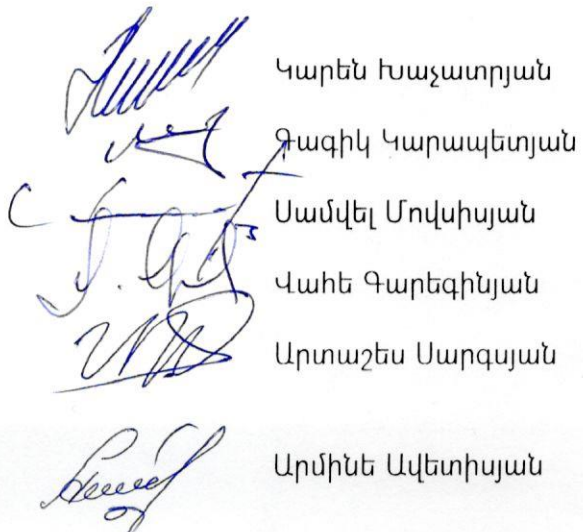 Կարեն Խաչատրյան
Գագիկ Կարապետյան
Սամվել Մովսիսյան
Վահե Գարեգինյան
Արտաշես Սարգսյան
Արմինե Ավետիսյան